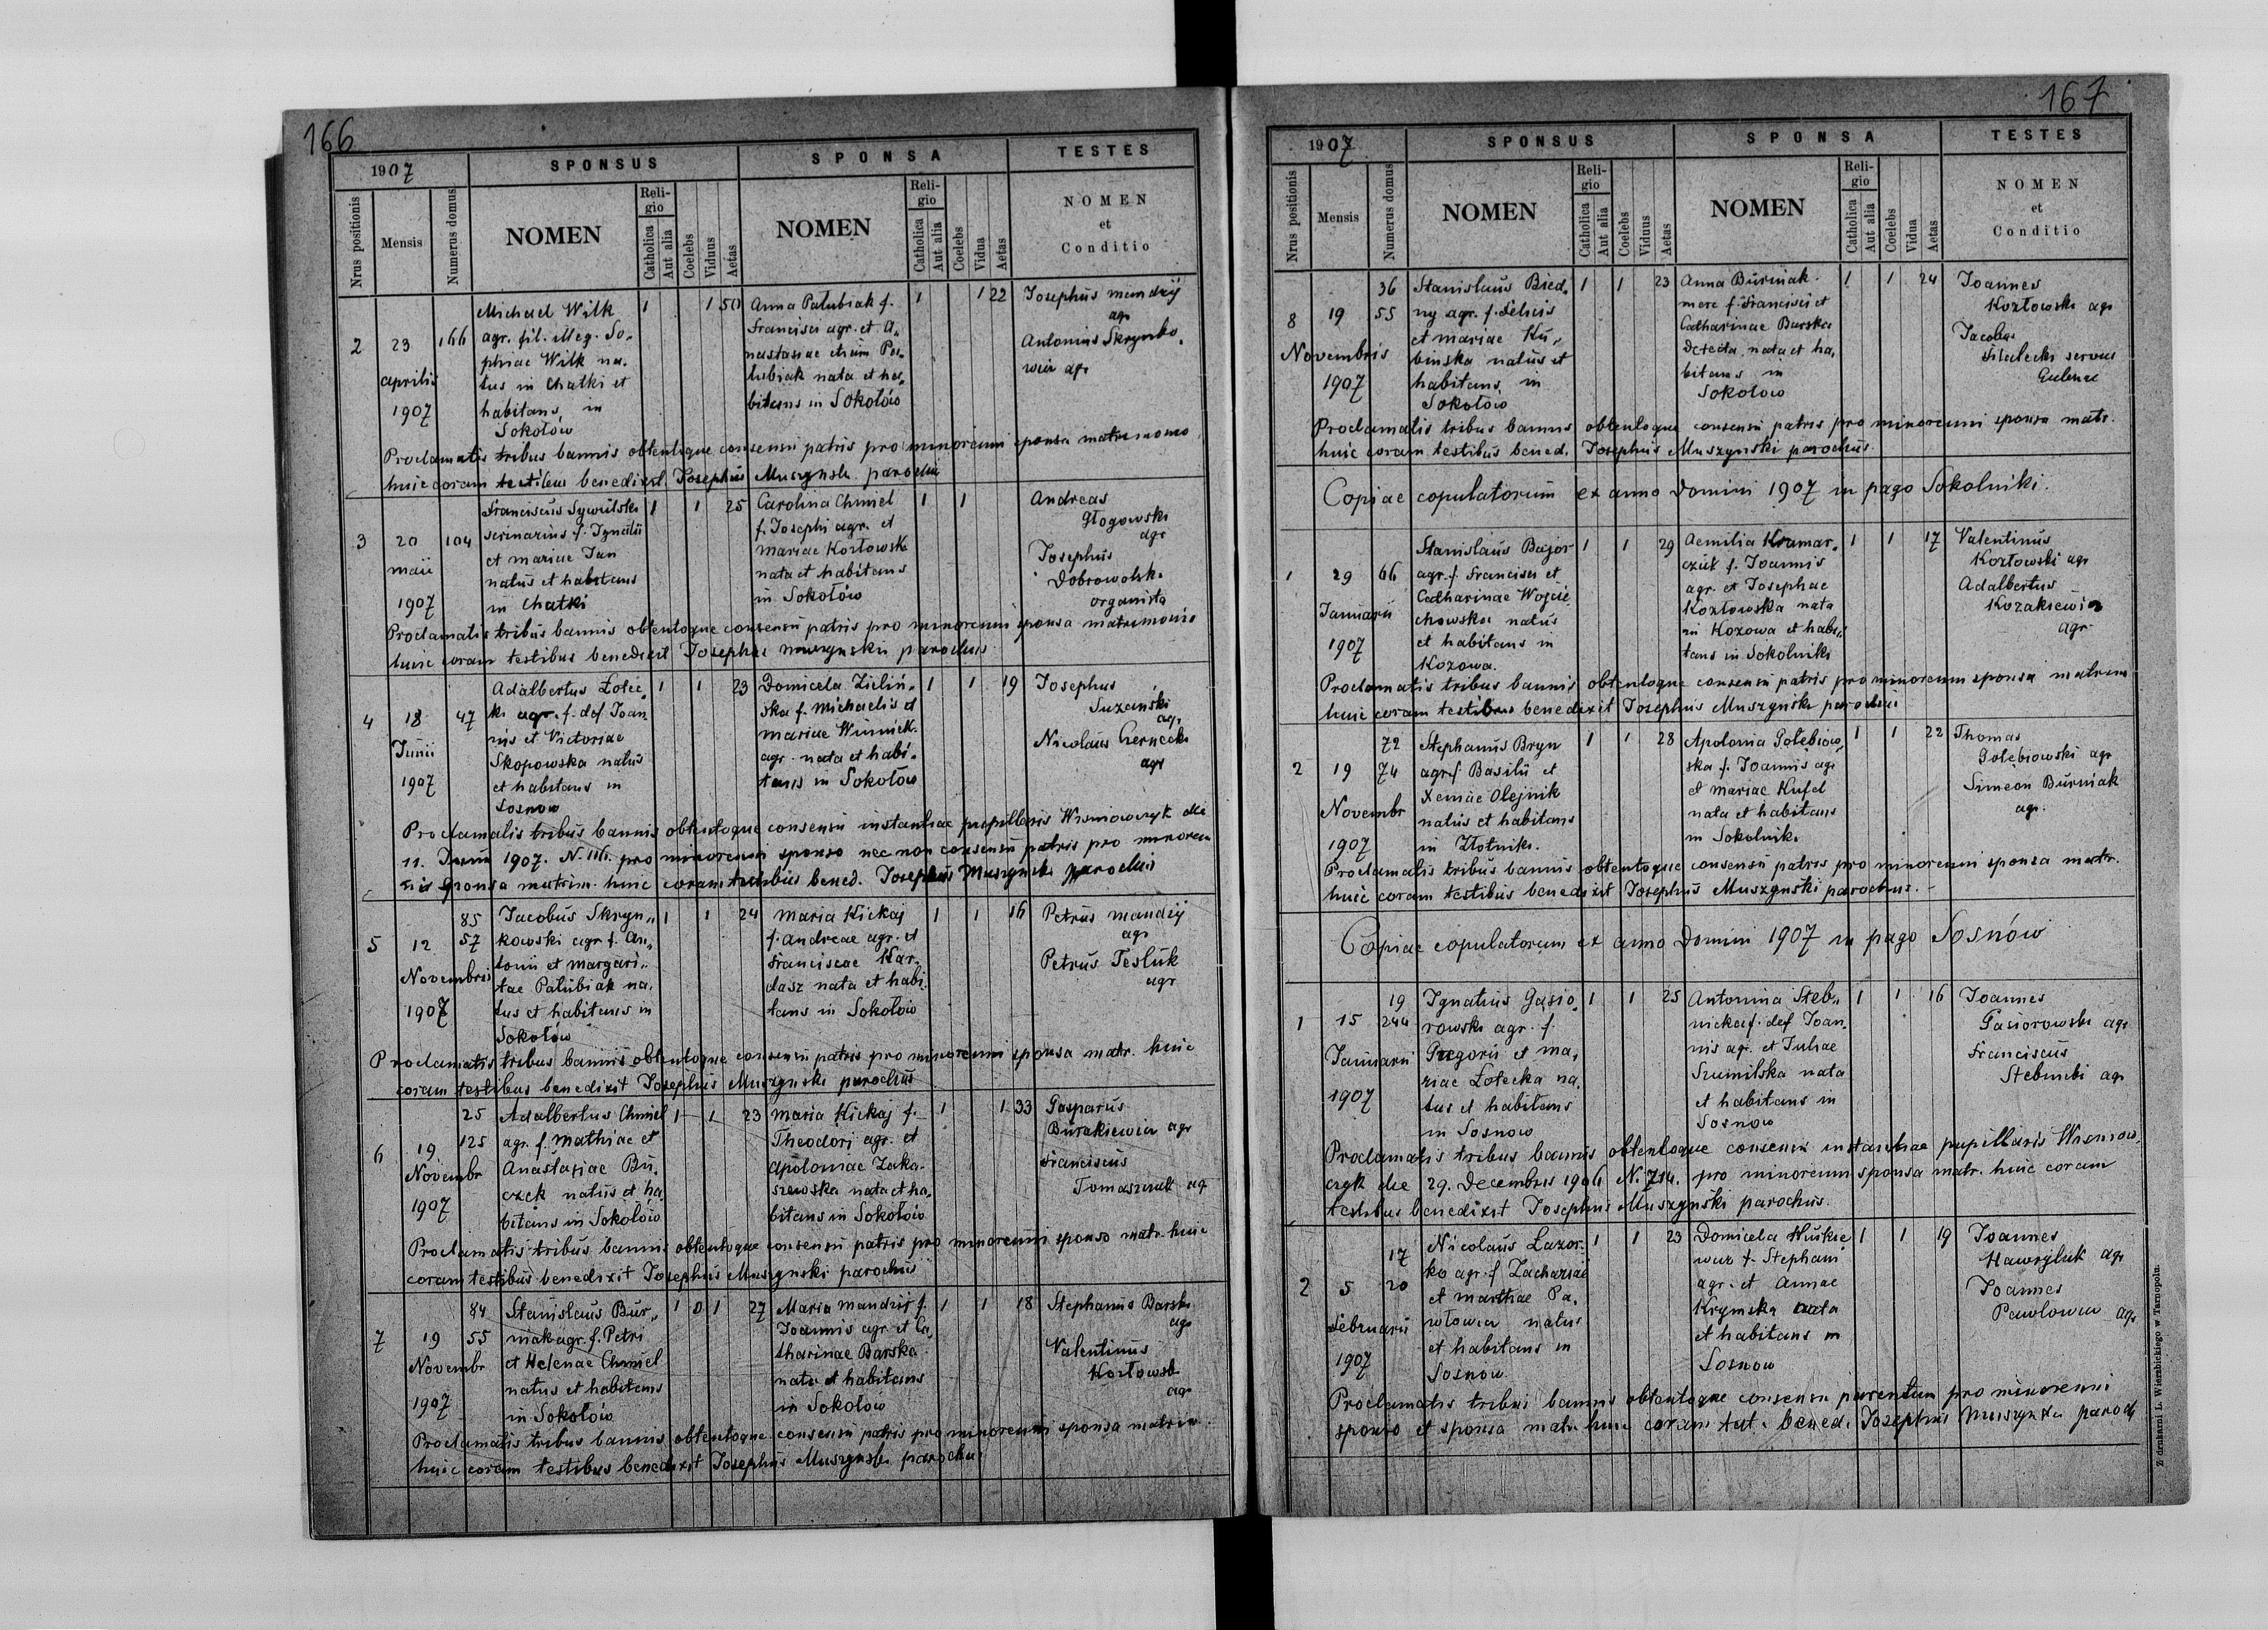 166
1907
SPONSUS
SPONSA
TESTES
Nrus positionis
Mensis
Numerus domus
NOMEN
Religio
Catholica
Aut alia
Coelebs
Viduus
Aetas
NOMEN
Religio
Catholica
Aut alia
Coelebs
Vidua
Aetas
NOMEN
et
Conditio
2
23
aprilis
1907
166
Michael Wilk
agr. fil. illeg. So„
phiae Wilk na„
tus in Chatki et
habitans in
Sokołów
1 1 50
Anna Palubiak f.
Francisci agr. et A„
nastasiae etiam Pa„
lubiak nata et ha„
bitans in Sokołów
1 1 22
Josephus Mandzij
agr
Antonius
agr
Proclamatis tribus bannis obtentoque consensu patris pro minorenni sponsa matrimonio
huic coram testibus benedixit Josephus Muszynski parochus
3
20
maii
1907
104
Franciscus Sywulski
f. Ignatii
et mariae Jan
natus et habitans
in Chatki
1 1 25
Carolina Chmiel
f. Josephi agr. et
Mariae Kozłowska
nata et habitans
in Sokołów
1 1
Andreas
Głogowski
agr
Josephus
Dobrowolski
organista
Proclamatis tribus bannis obtentoque consensu patris pro minorenni sponsa matrimonio
huic coram testibus benedixit Josephus Muszynski parochus
4
18
Junii
1907
47
Adalbertus Łotec„
ki agr. f. def Joan
nis et Victoriae
Skopowska natus
et habitans in
Sosnow
1 1 23
Domicela Zieliń„
ska f. Michaelis et
Mariae
agr. nata et habi„
tans in Sokołów
1 1 19
Josephus
Suzanski
agr
Nicolaus Czernecki
agr
Proclamatis tribus bannis obtentoque consensu instantiae pupillaris Wisniowczyk die
11. Junii 1907. N. pro minorenni sponso nec non consensu patris pro minoren
nis sponsa matrim. huic coram testibus bened. Josephus Muszynski parochus
5
12
Novembris
1907
85
57
Jacobus Skryn„
kowski agr f. An„
tonii et Margari„
tae Palubiak na„
tus et habitans in
Sokołów
1 1 24
Maria Kickaj
f. Andreae agr. et
Franciscae Kar„
dasz nata et habi„
tans in Sokołów
1 1 16
Petrus Mandzij
agr
Petrus Tesluk
agr
Proclamatis tribus bannis obtentoque consensu patris pro minorenni sponsa matr. huic
coram testibus benedixit Josephus Muszynski parochus
6
19
Novembr
1907
25
125
Adalbertus Chmiel
agr. f. Mathiae et
Anastasiae Bu„
czek natus et ha„
bitans in Sokołów
1 1 23
Maria Kickaj f.
Theodori agr. et
Apoloniae Zaka„
szewska nata et ha„
bitans in Sokołów
1 1 33
Gasparus
Burakiewicz agr
Franciscus
Tomaszczuk agr
Proclamatis tribus bannis obtentoque consensu patris pro minorenni sponso matr. huic
coram testibus benedixit Josephus Muszynski parochus
7
19
Novembr
1907
84
55
Stanislaus Bur„
niak agr. f. Petri
et Helenae Chmiel
natus et habitans
in Sokołów
1 0 1 27
Maria Mandzij f.
Joannis agr. et Ca„
tharinae Barska
nata et habitans
in Sokołów
1 1 18
Stephanus Barski
agr
Valentinus
Kozłowski
agr
Proclamatis tribus bannis obtentoque consensu patris pro minorenni sponsa matrim.
huic coram testibus benedixit Josephus Muszynski parochus
167
1907
SPONSUS
SPONSA
TESTES
Nrus positionis
Mensis
Numerus domus
NOMEN
Religio
Catholica
Aut alia
Coelebs
Viduus
Aetas
NOMEN
Religio
Catholica
Aut alia
Coelebs
Vidua
Aetas
NOMEN
et
Conditio
8
19
Novembris
1907
36
55
Stanislaus Bied„
ny agr. f. Felicis
et Mariae Ku„
binska natus et
habitans in
Sokołów
1 1 23
Anna Burniak
f. Francisci et
Catharinae Barska
nata et ha„
bitans in
Sokołow
1 1 24
Joannes
Kozłowski agr
Jacobus
servus
Proclamatis tribus bannis obtentoque consensu patris pro minorenni sponsa matr.
huic coram testibus bened. Josephus Muszynski parochus.
Copiae copulatorum ex anno Domini 1907 in pago Sokolniki.
1
29
Januarii
1907
66
Stanislaus Bajor
agr. f. Francisci et
Catharinae Wojcie
chowska natus
et habitans in
Kozowa.
1 1 29
Aemilia Kramar„
czuk f. Joannis
agr. et Josephae
Kozłowska nata
in Kozowa et habi„
tans in Sokolniki
1 1 17
Valentinus
Kozłowski agr
Adalbertus
Kozakiewicz
agr.
Proclamatis tribus bannis obtentoque consensu patris pro minorenni sponsa matrim
huic coram testibus benedixit Josephus Muszynski parochus
2
19
Novembr
1907
72
74
Stephanus Bryn
agr f Basilii et
Xeniae Olejnik
natus et habitans
in Złotniki.
1 1 28
Apolonia Gołebiow„
ska f. Joannis agr
et Mariae Kufel
nata et habitans
in Sokolniki
1 1 22
Thomas
Gołębiowski agr
Simeon Burniak
agr.
Proclamatis tribus bannis obtentoque consensu patris pro minorenni sponsa matr.
huic coram testibus benedixit Josephus Muszynski parochus.
Copiae copulatorum ex anno Domini 1907 in pago Sosnów
1
15
Januarii
1907
19
244
Ignatius Gąsio„
rowski agr. f.
Gregorii et Ma„
riae Łotecka na„
tus et habitans
in Sosnow
1 1 25
Antonina Steb„
nicka f. def Joan„
nis agr. et Juliae
Szumilska nata
et habitans in
Sosnow
1 1 16
Joannes
Gasiorowski agr
Franciscus
Stebnicki agr
Proclamatis tribus bannis obtentoque consensu instantiae pupillaris Wisniow„
czyk die 29. Decembris 1906 N. 714. pro minorenni sponsa matr. huic coram
testibus benedixit Josephus Muszynski parochus.
2
5
Februarii
1907
17
20
Nicolaus Lazor„
ko agr. f Zachariae
et Marthae Pa„
włowicz natus
et habitans in
Sosnów
1 1 23
Domicela
f. Stephani
agr. et Annae
Krymska nata
et habitans in
Sosnow
1 1 19
Joannes
Hawryluk agr
Joannes
Pawłowicz agr
Proclamatis tribus bannis obtentoque consensu parentum pro minorenni
sponso et sponsa matr. huic coram test. bened. Josephus Muszynski paroch
Z drukarni L. Wierzbickiego w Tarnopolu.